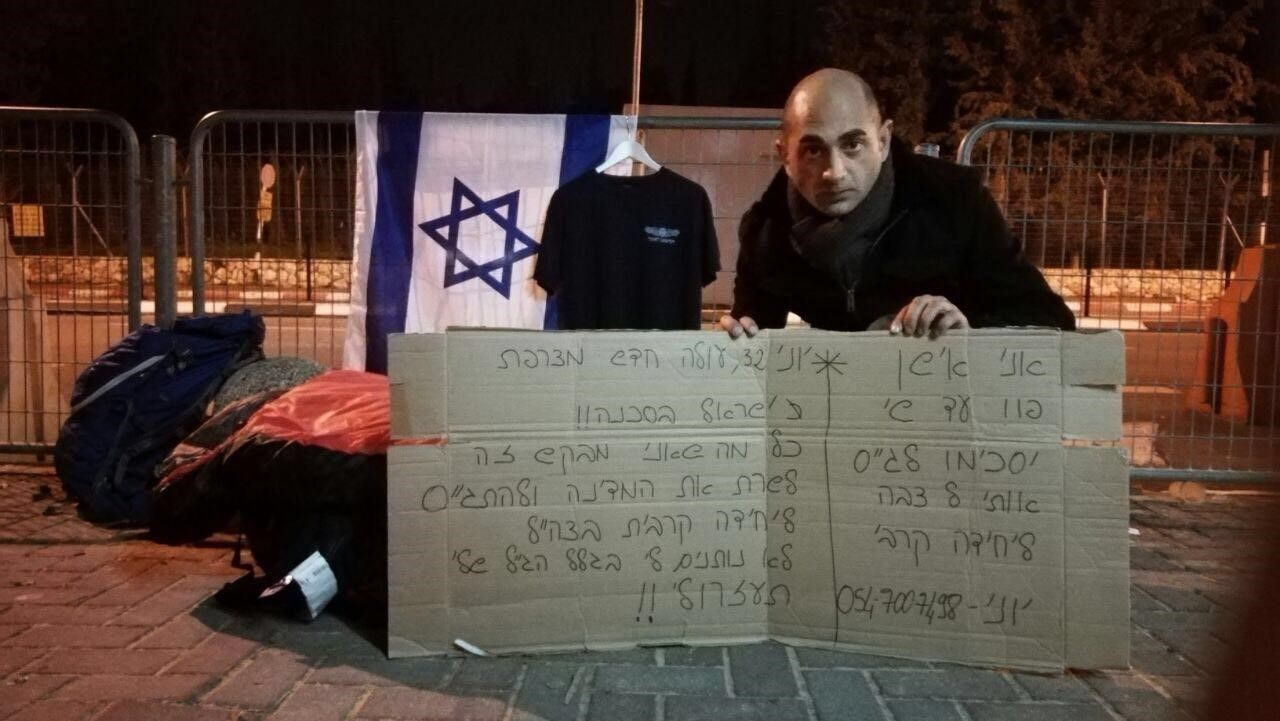 אני אישן
פוו עד שי
יסכימו לגייס
אותי ל צבה
ליחידה קרבי
יוני - 054-7007498
* יוני 32, עולה חדש מצרפת
כישראל בסכנה!!
כל מה שאני מבקש זה
לשרת את המדינה ולהתגייס
ליחידה קרבית בצה"ל
לא נותנים לי בגלל הגיל שלי
תעזרו לי !!